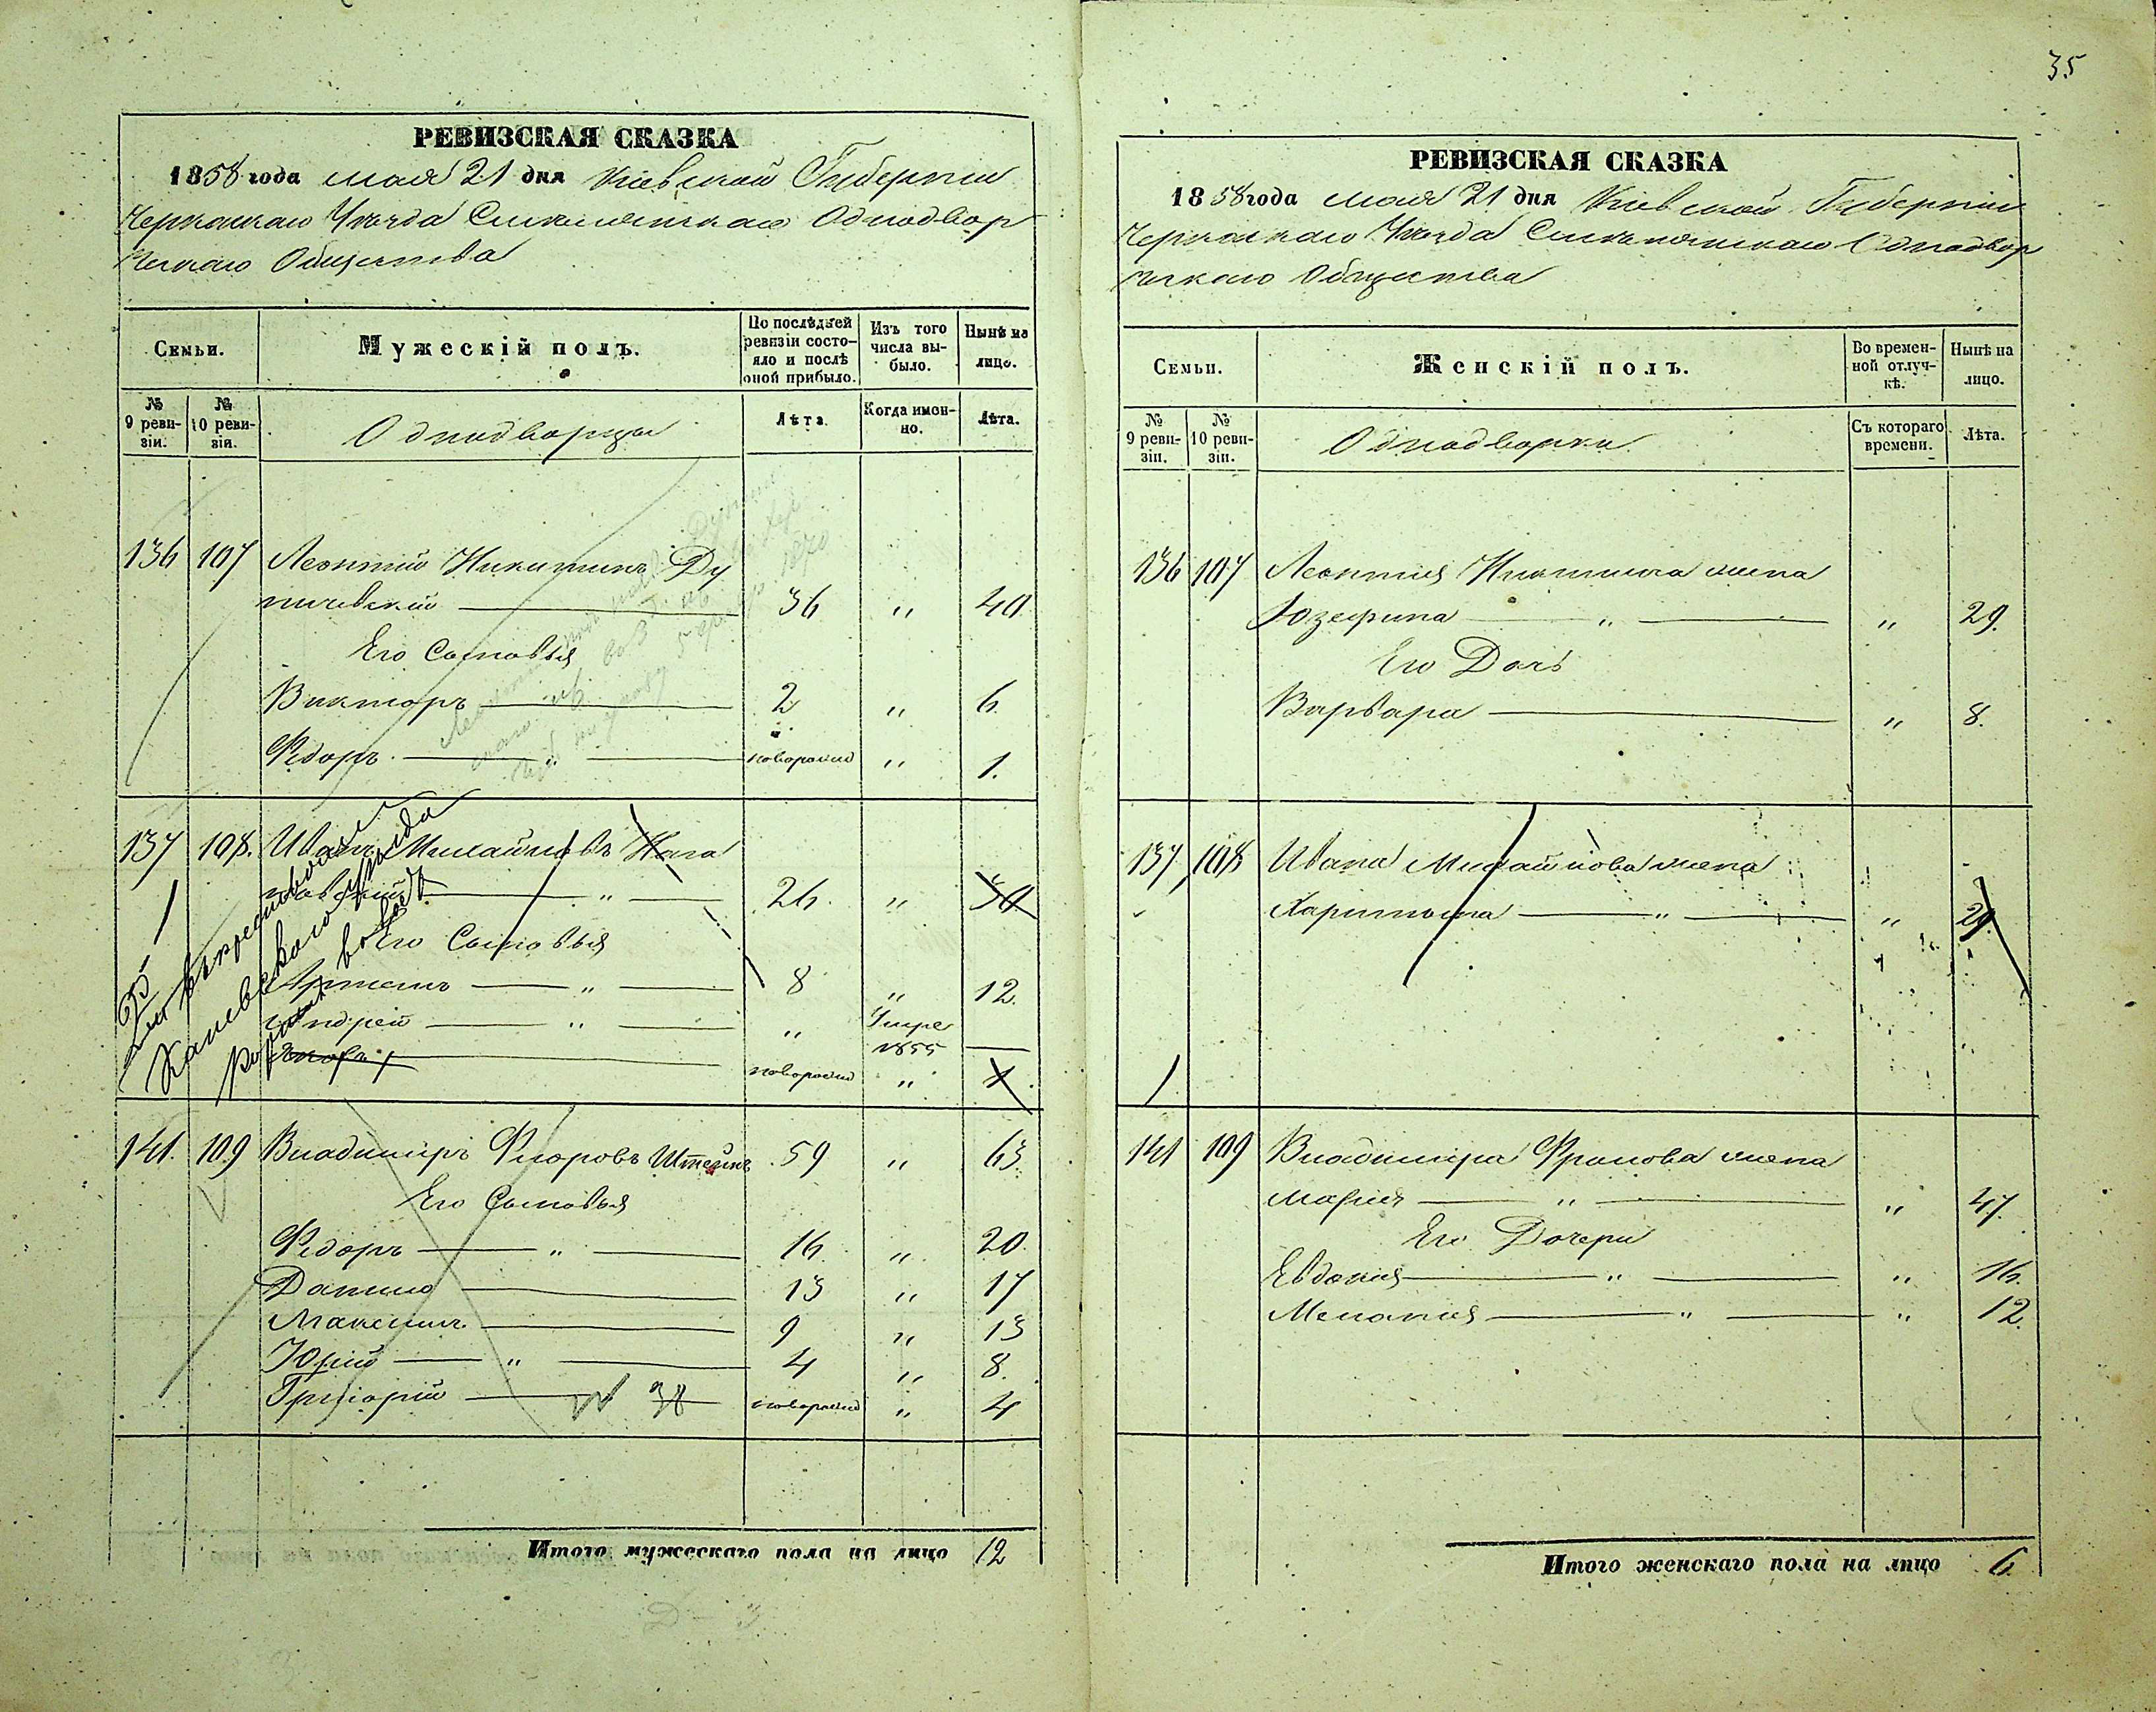 35
РЕВИЗСКАЯ СКАЗКА
1858 года мая 21 дня Кіевской Губерніи
Черкаскаго Уѣзда Смѣлянскаго Однодвор
ческаго Общества
Семьи.
Мужескій полъ.
По послѣдней ревизіи состояло и послѣ оной прибыло.
Изъ того числа выбыло.
Нынѣ на лицо.
№ 9 ревизіи.
№ 10 ревизіи.
Однодворцы
Лѣта.
Когда именно.
Лѣта.
136 107 Леонтий Никитинъ Ду
36 " 40
Его Сыновья
Викторъ " 2 " 6.
Федоръ " новорожд " 1.
137 108. Иванъ Михайловъ
" 26. " 30
Его Сыновья
Артемъ " 8 " 12.
Андрей " " Умре 1855
новорожд " 1.
Каневского уѣзда
141. 109 Владимиръ Штейнъ 59 " 63
Его Сыновья
Федоръ " 16 " 20.
Данило 13 " 17
Максимъ 9 " 13
Юрій " 4 " 8.
Григорій 38 новорожд " 4
Итого мужескаго пола на лицо 12
РЕВИЗСКАЯ СКАЗКА
1858 года мая 21 дня Кіевской Губерніи
Черкаскаго Уѣзда Смѣлянскаго Однодвор
ческаго Общества
Семьи.
Женскій полъ.
Во временной отлучкѣ.
Нынѣ на лицо.
№ 9 ревизіи.
№ 10 ревизіи.
Однодворки
Съ котораго времени.
Лѣта.
136 107 Леонтия Никитина жена
Юзефина " " 29.
Его Дочь
Варвара " 8.
137 108 Ивана Михайлова жена
Харитина " " 29.
141 109 Владимира жена
Мария " " 47.
Его Дочери
Евдокия " " 16.
Мелания " " 12.
Итого женскаго пола на лицо 6.